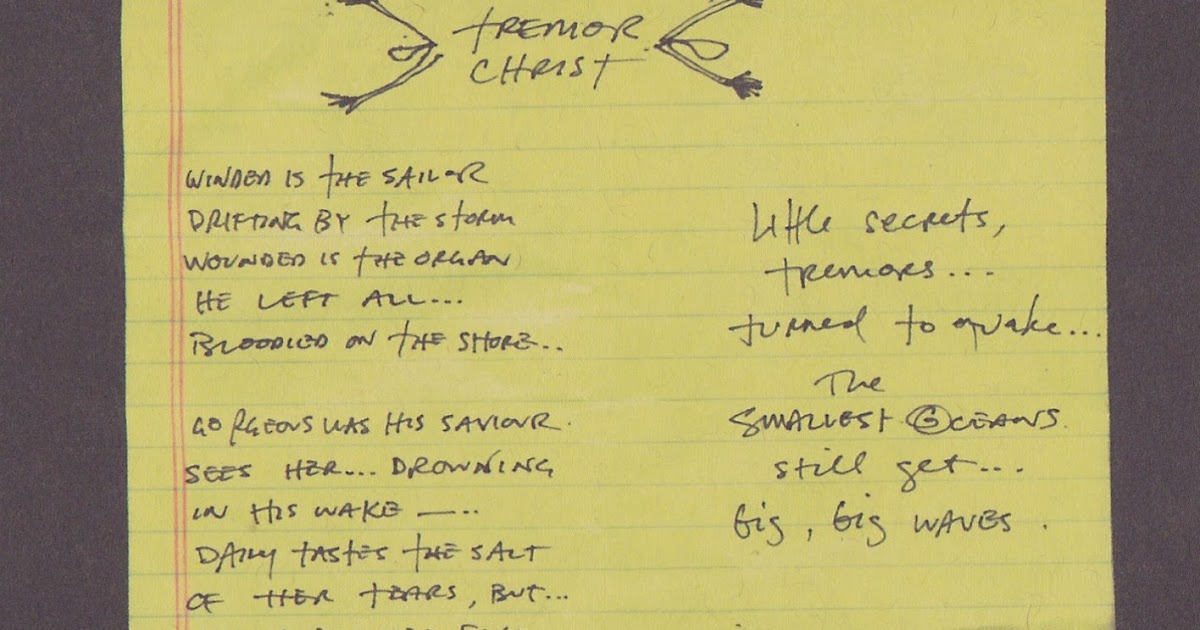 TREMOR
CHRIST
WINDED IS THE SAILOR
DRIFTING BY THE STORM
WOUNDED IS THE ORGAN
HE LEFT ALL...
BLOODIED ON THE SHORE..
GORGEOUS WAS HIS SAVIOUR.
SEES HER... DROWNING
IN HIS WAKE —..
DAILY TASTES THE SALT
OF HER TEARS, BUT...
little secrets,
tremors...
turned to quake...
The
SMALLEST OCEANS
still get...
big, big WAVES.